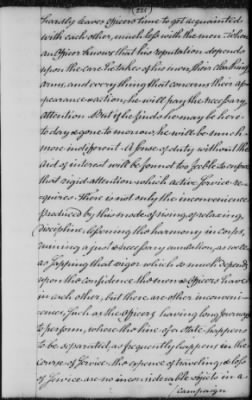 (221)
hardly leaves officers time to get acquainted
with each other, much less with the men. When
an officer knows that his reputation depends
upon the care he takes of his men, their cloathing
arms, and every thing that concerns their ap-
pearance & action, he will pay the necessary
attention. But if he finds he may be here
to day & gone to morrow, he will be much
more indifferent. A sense of duty without the
aid of interest will be found too feeble to enforce
that rigid attention which active service re-
quires. There is not only the inconvenience
produced by this mode of rising, of relaxing
discipline, lessening the harmony in corps,
ruining a just & necessary emulation, as well
as sapping that vigor which so much depends
upon the confidence the men & officers have
in each other, but there are other inconveni-
ences, such as the officers having long journeys
to perform, where the line of a state happens
to be separated, as frequently happens in the
course of service. The expence of traveling, & loss
of service are no inconsiderable objects in a
campaign